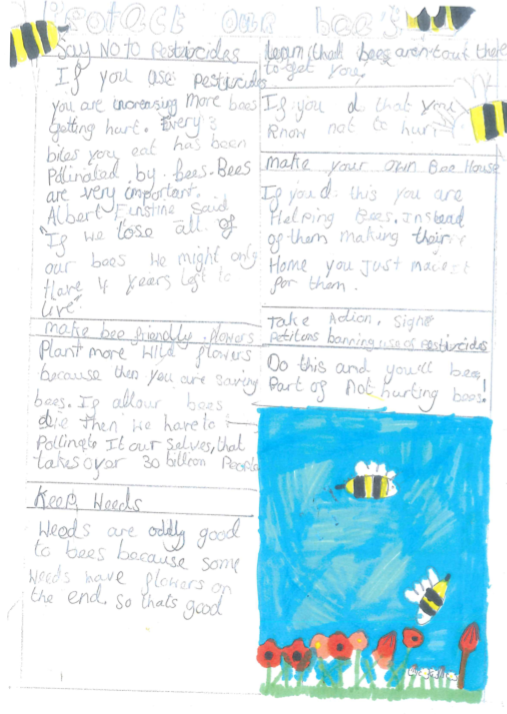 Protect our bee's
Say No to Pestivcides
If you use pestivcides
you are increasing more bees
getting hurt. Every 3
bites you eat has been
Pollinated by Bees. Bees
are very important.
Albert Einstine Said
"If we lose all of
our bees we might only
Have 4 years left to
live"
make bee friendly flowers
Plant more wild flowers
because then you are saving
bees. If all our bees
die then we have to
Pollinate It our selves, that
takes over 30 billion People
Keep Weeds
Weeds are oddly good
to bees because some
weeds have flowers on
the end. so thats good
learn that bees aren't out there
to get you.
If you do that you
know not to hurt
make your own Bee House
If you do this you are
Helping Bees. instead
of them making their
Home you just made it
for them.
Take Action. Signe
Petitons banning use of Pestivcides
Do this and you'll bee
Part of Not hurting bees!